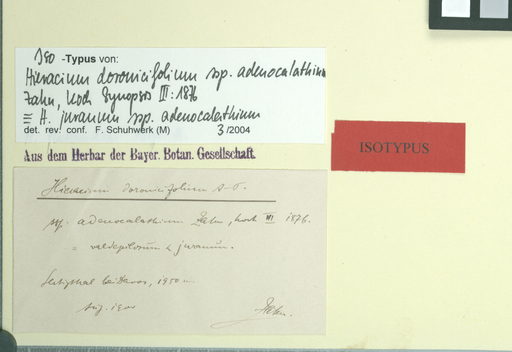 Iso -Typus von:
Hieracium doronicifolium ssp. adenocalathium
Zahn, Koch Synopsis III: 1876
≡ H. juranum ssp. adenocalathium
det. rev. conf. F. Schuhwerk (M) 3/2004
Aus dem Herbar der Bayer. Botan. Gesellschaft.
ISOTYPUS
Hieracium doronicifolium A-T.
ssp. adenocalathium Zahn, Koch III 1876.
= valdepilosum < juranum.
Sertigthal bei Davos, 1950 m
Aug.
Zahn.